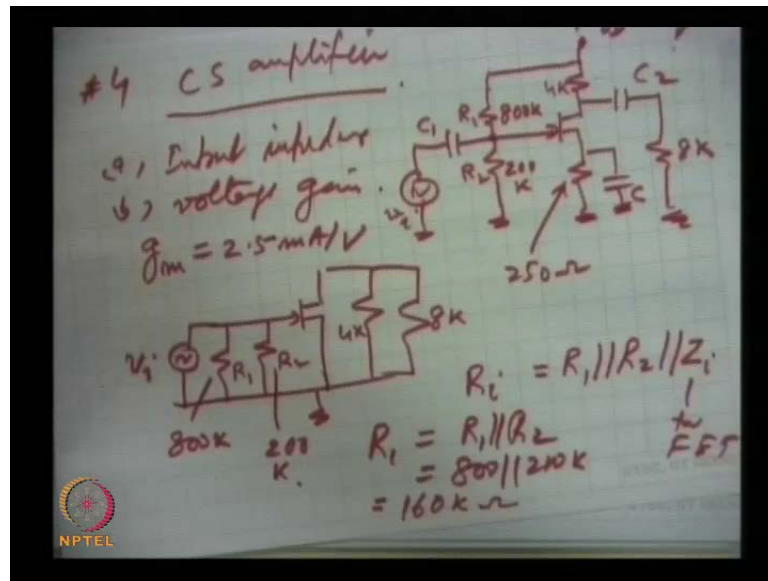 #4 CS amplifier.
a, Input impedance
b, voltage gain.
gm = 2.5 mA/V
4K
C2
R1
800K
C1
R2
200
K
8K
vi
C
250Ω
Vi
R1
R2
4K
8K
800K
200
K.
Ri = R1||R2||Zi
R1 = R1||R2
FET
= 800||200K
= 160KΩ
NPTEL